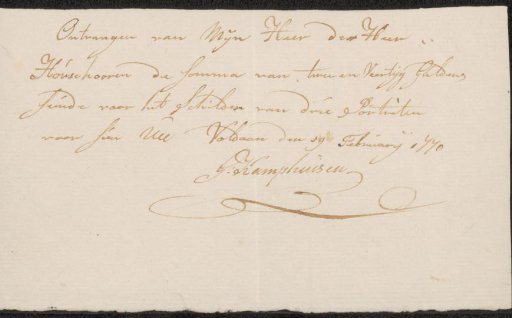 Ontvangen van Mijn Heer der Heer
Houschooren de somma van twee en Veertig Guldens
zeinde voor het schilden van drie Portriten
voor hier UE Voldaan den 19de Februarij 1770
G. Kamphuisen